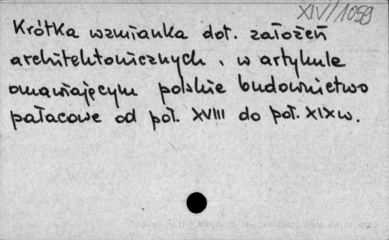 XIV/1059
Krótka wzmianka dot. założeń
architektonicznych, w artykule
omawiającym polskie budownictwo
pałacowe od poł. XVIII do poł. XIX w.